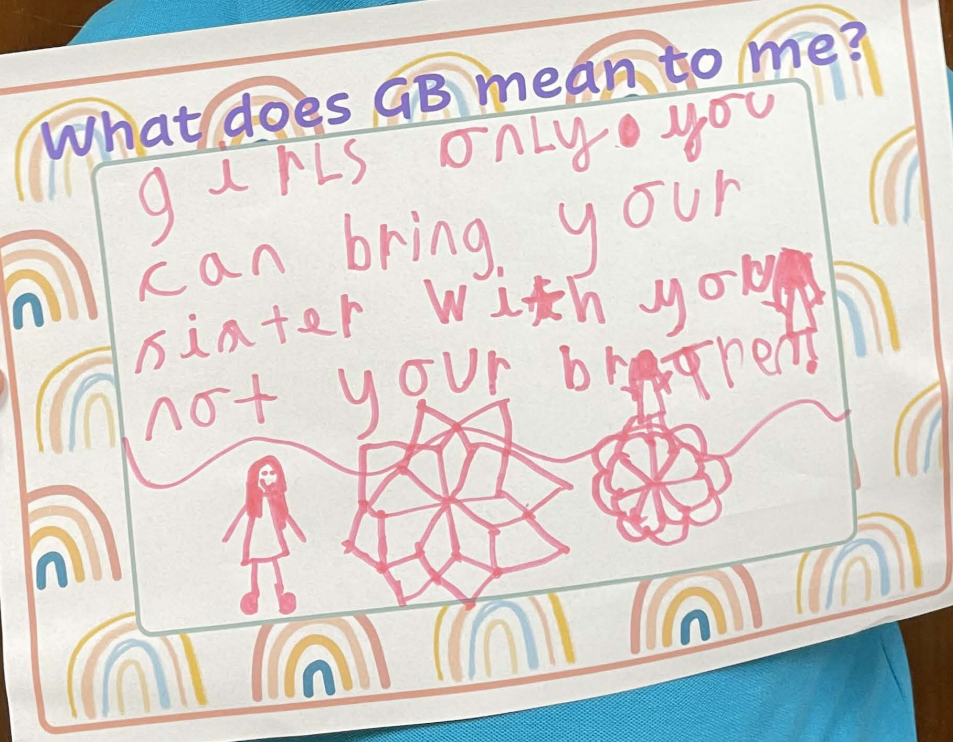 What does GB mean to me?
girls only. you
can bring your
sister with you
not your brother!